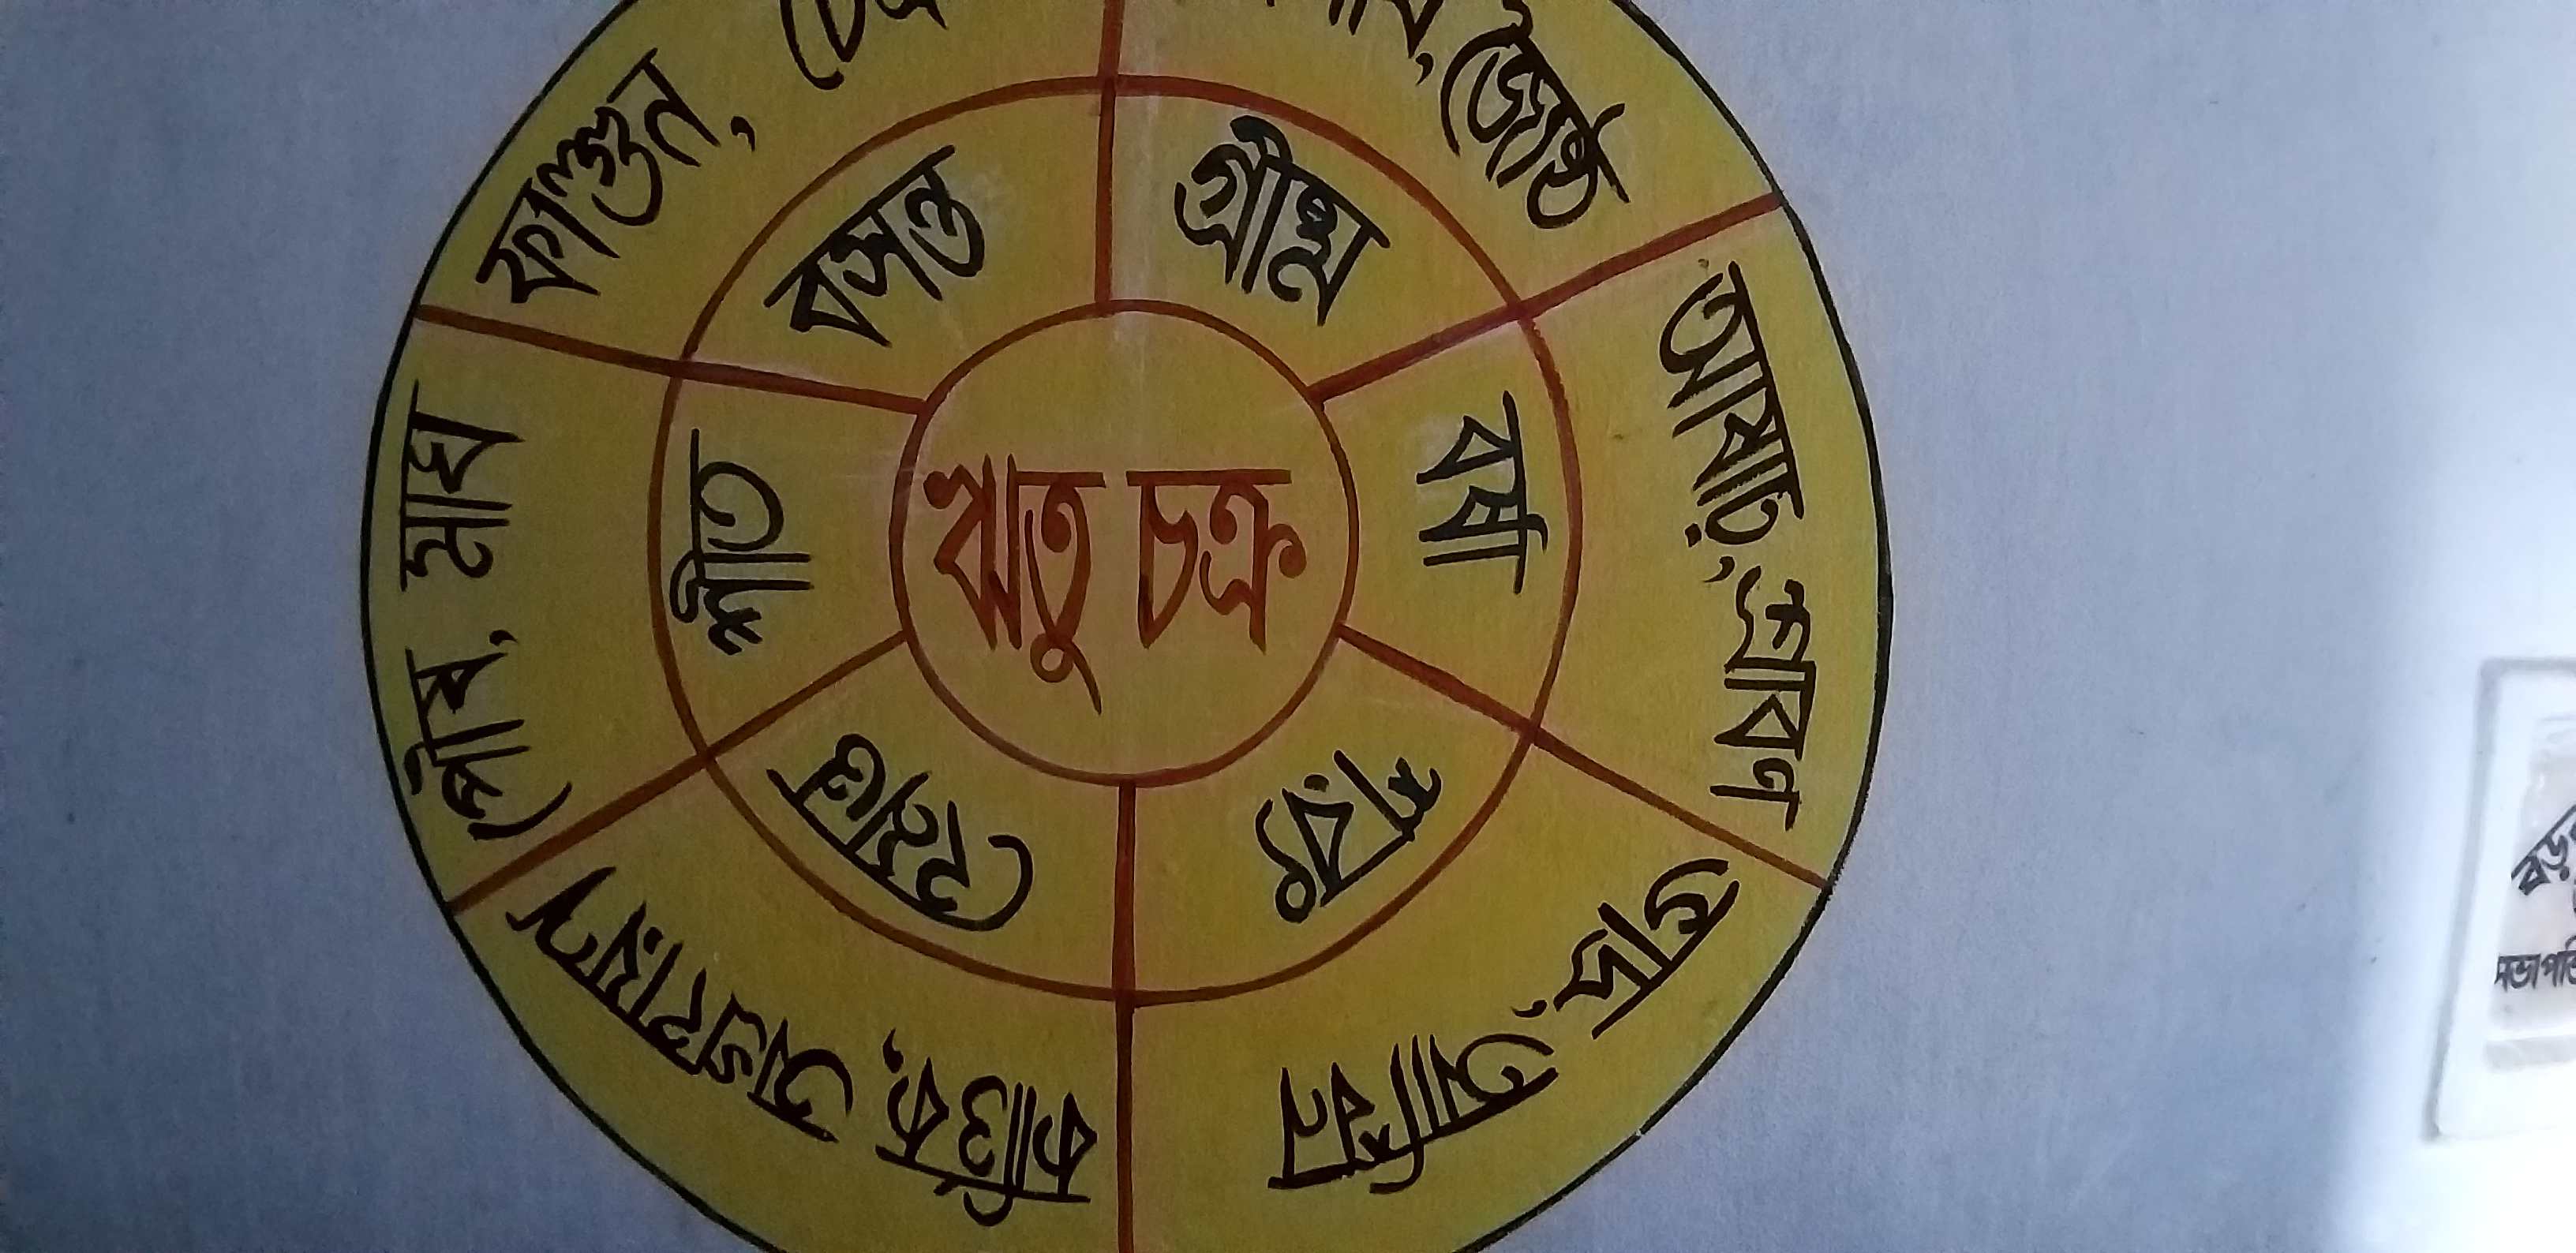 ঋতু চক্র
গ্রীষ্ম
জ্যৈষ্ঠ
বর্ষা
আষাঢ়, শ্রাবণ
শরৎ
ভাদ্র, আশ্বিন
হেমন্ত
কার্ত্তিক, অগ্রহায়ণ
শীত
পৌষ, মাঘ
বসন্ত
ফাল্গুন,